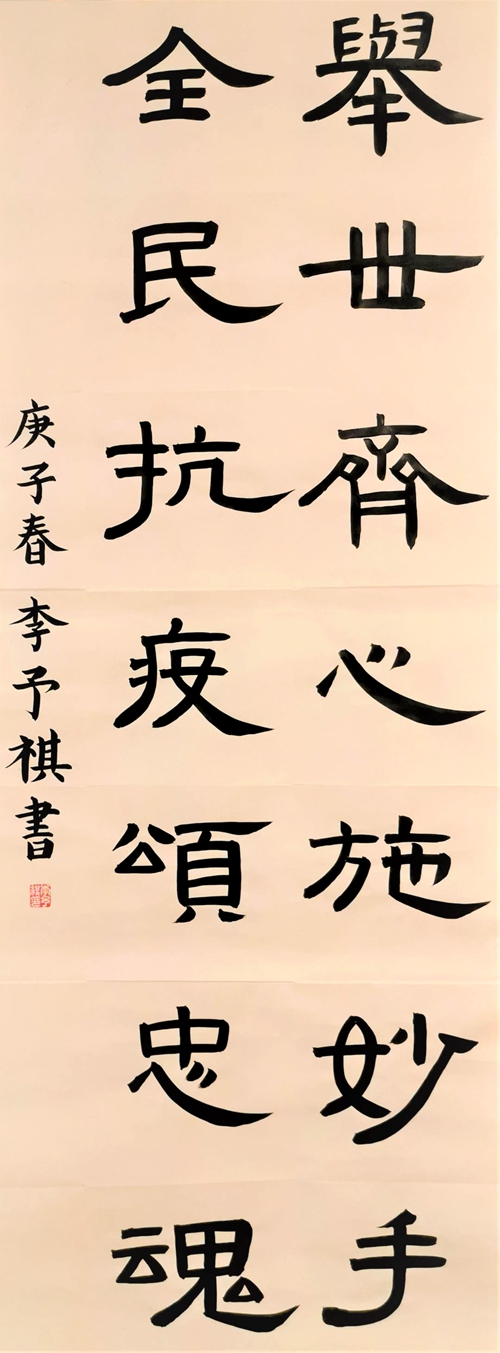 舉世齊心施妙手
全民抗疫頌忠魂
庚子春 李予祺書